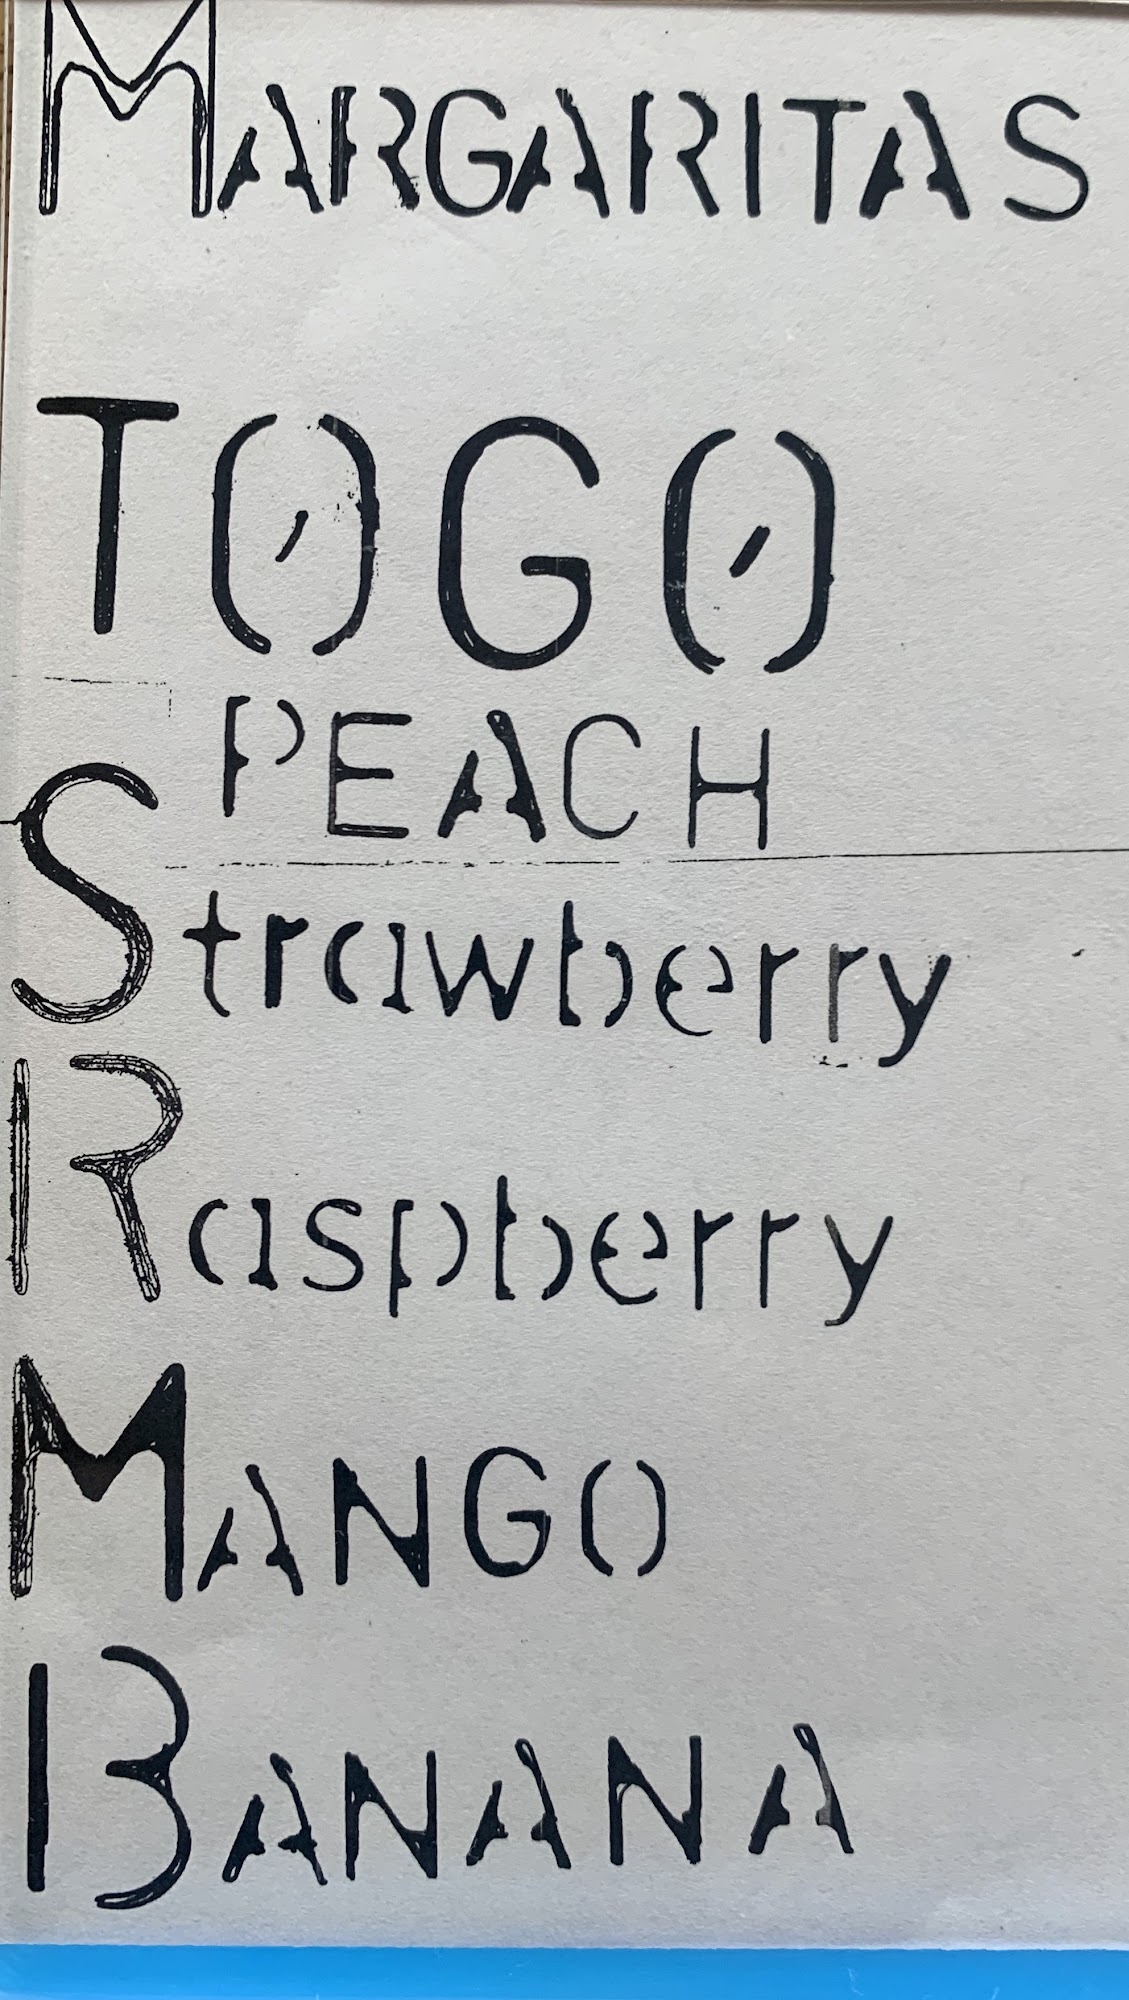 MARGARITAS
TOGO
PEACH
Strawberry
Raspberry
MANGO
BANANA